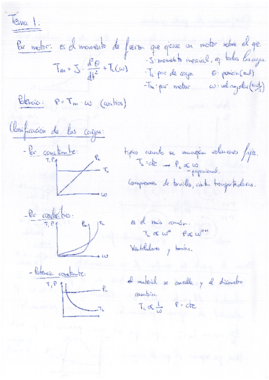 Tema 1.
Par motor: es el momento de fuerza que ejerce un motor sobre el eje.
Tm = J · d²θ/dt² + TL(ω)
- J: momento inercial, eq todas las cargas
- TL: par de carga θ: posición (rad)
- Tm: par motor ω: vel angular (rad/s)
Potencia: P = Tm · ω (vatios)
Clasificación de las cargas:
- Par constante:
T, P
PL
TL
ω
típico cuando se manejan volúmenes fijos
TL = cte → PL ∝ ω
proporcional
Compresores de tornillo, cintas transportadoras.
- Par cuadrático:
T, P
PL
TL
ω
es el más común.
TL ∝ ωⁿ P ∝ ωⁿ⁺¹
Ventiladores y bombas.
- Potencia constante:
T, P
PL
TL
ω
el material se enrolla y el diámetro
cambia.
TL ∝ 1/ω P = cte